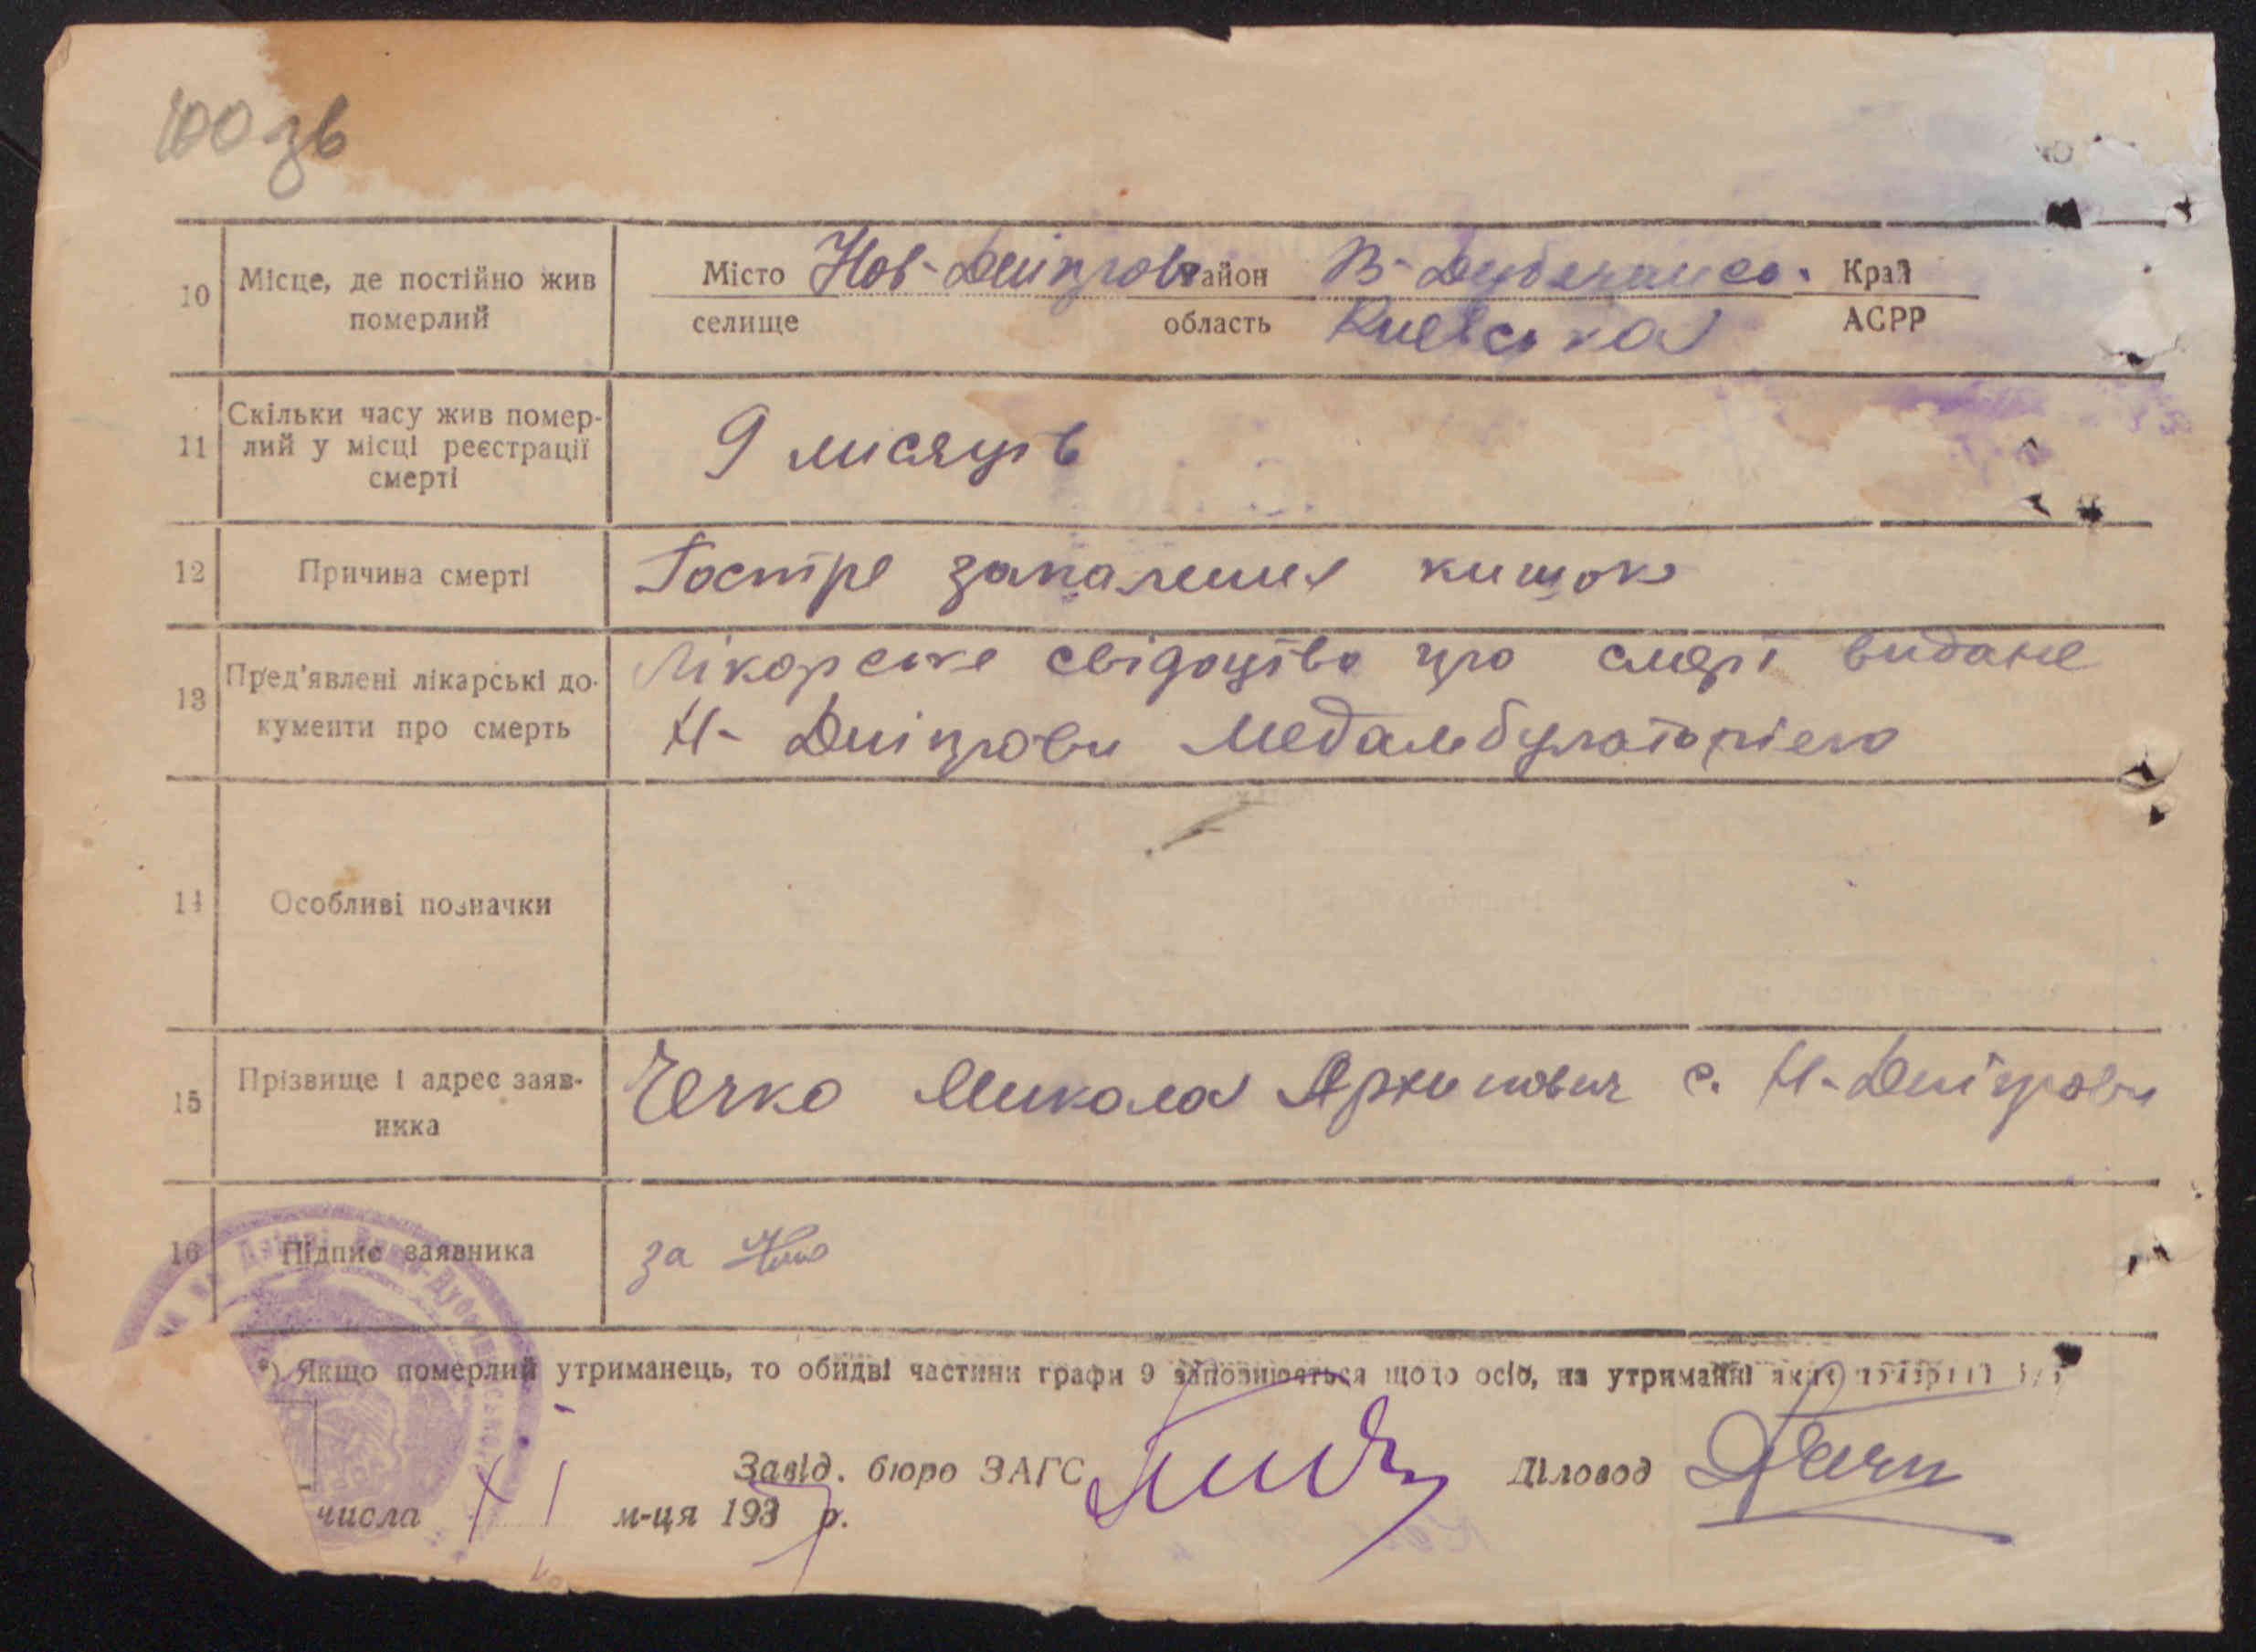 100 зв
10 Місце, де постійно жив померлий
Місто Нов-Дніпров район В-Дубечансь. Край
селище область Київська АСРР
11 Скільки часу жив помер-
лий у місці реєстрації
смерті
9 місяців
12 Причина смерті Гостре запалення кишок
13 Пред'явлені лікарські до-
кументи про смерть
Лікарське свідоцтво про смерт видане
Н- Дніпрови Медамбулаторією
14 Особливі позначки
15 Прізвище і адрес заяв-
ника
Чечко Микола Архипович с. Н-Дніпрови
16 Підпис заявника за
*) Якщо померлий утриманець, то обидві частини графи 9 заповнюються щодо осіб, на утриманні яких
Завід. бюро ЗАГС Діловод
числа XI м-ця 1937 р.